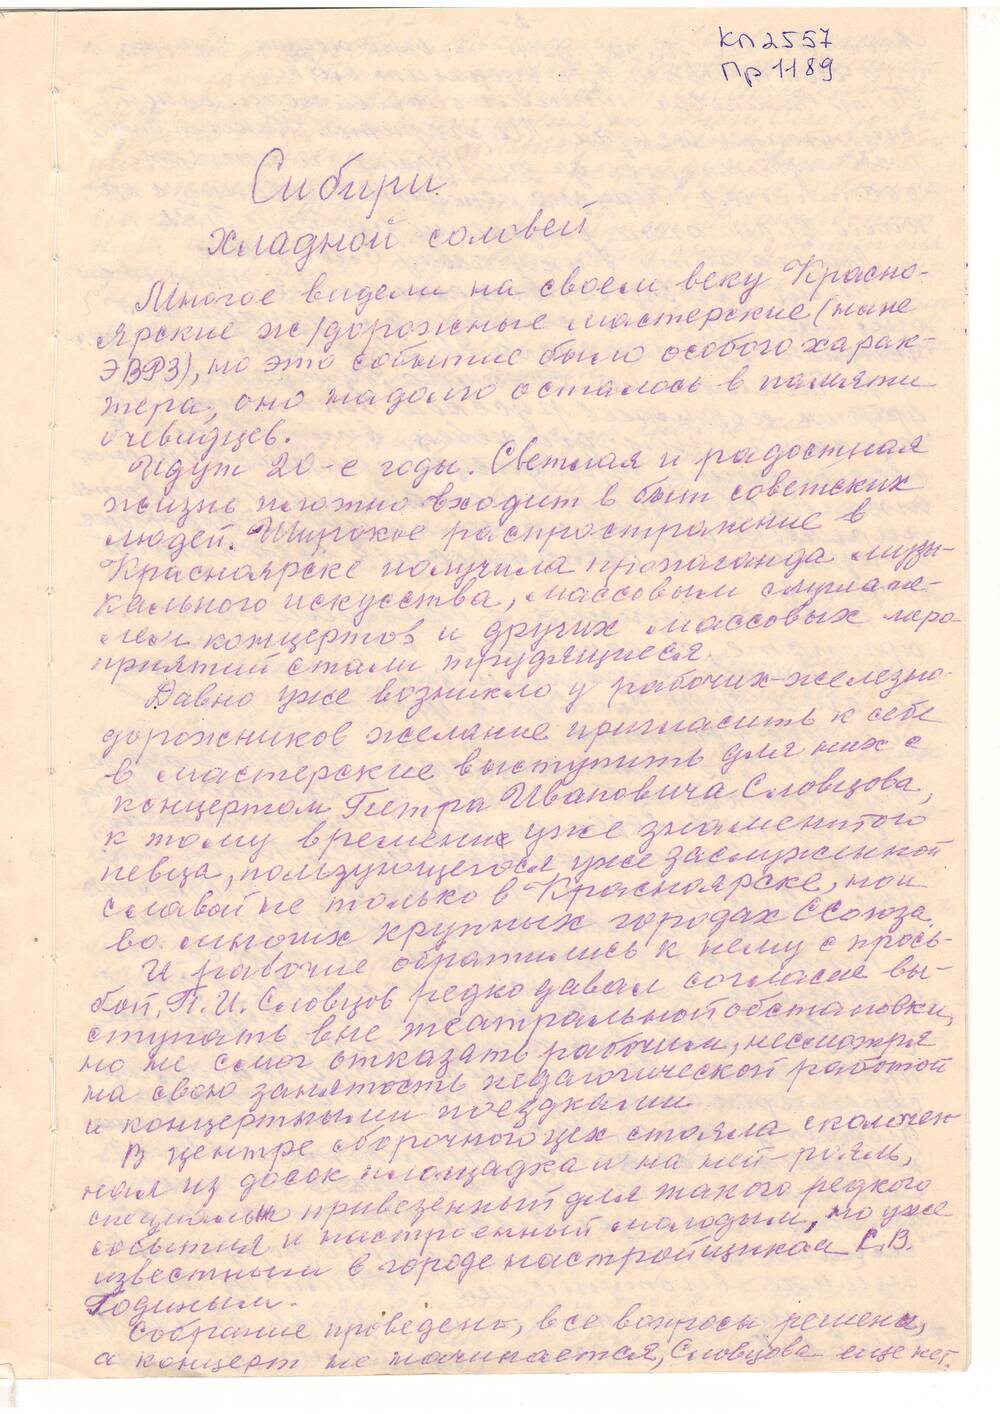 КП2557
Пр1189
Сибири
хладной соловей
Многое видели на своем веку Красно-
ярские ж/дорожные мастерские (ныне
ЭВРЗ), но это событие было особого харак-
тера, оно надолго осталось в памяти
очевидцев.
Идут 20-е годы. Светлая и радостная
жизнь плотно входит в быт советских
людей. Широкое распространение в
Красноярске получила пропаганда музы-
кального искусства, массовым слушате-
лем концертов и других массовых меро
приятий стали трудящиеся.
Давно уже возникло у рабочих-железно-
дорожников желание пригласить к себе
в мастерские выступить для них с
концертом Петра Ивановича Словцова,
к тому времени уже знаменитого
певца, пользующегося уже заслуженной
славой не только в Красноярске, но и
во многих крупных городах ССоюза.
И рабочие обратились к нему с прось-
бой, П.И. Словцов редко давал согласие вы-
ступать вне театральной обстановки,
но не смог отказать рабочим, несмотря
на свою занятость педагогической работой
и концертными поездками.
В центре сборочного цех стояла сколочен
ная из досок площадка и на ней - рояль,
специально привезенный для такого редкого
события и настроенный молодым, но уже
известным в городе настройщиком С.В.
Годиным.
Собрание проведено, все вопросы решены,
а концерт не начинается, Словцова еще нет.